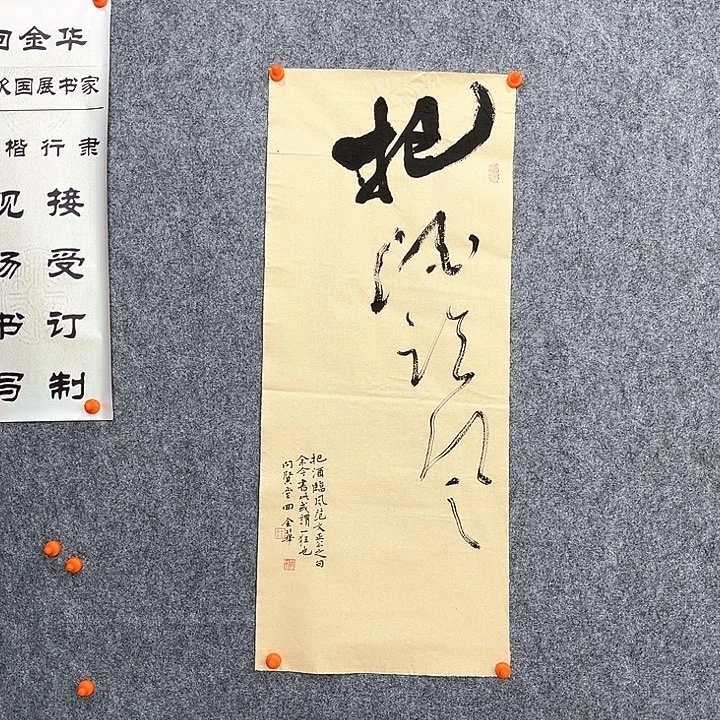 回金华
国展书家
楷行隶
现场书写
接受订制
把酒临风
把酒臨风范文正公之句
余今书此或谓一狂也
问贤堂 回金華